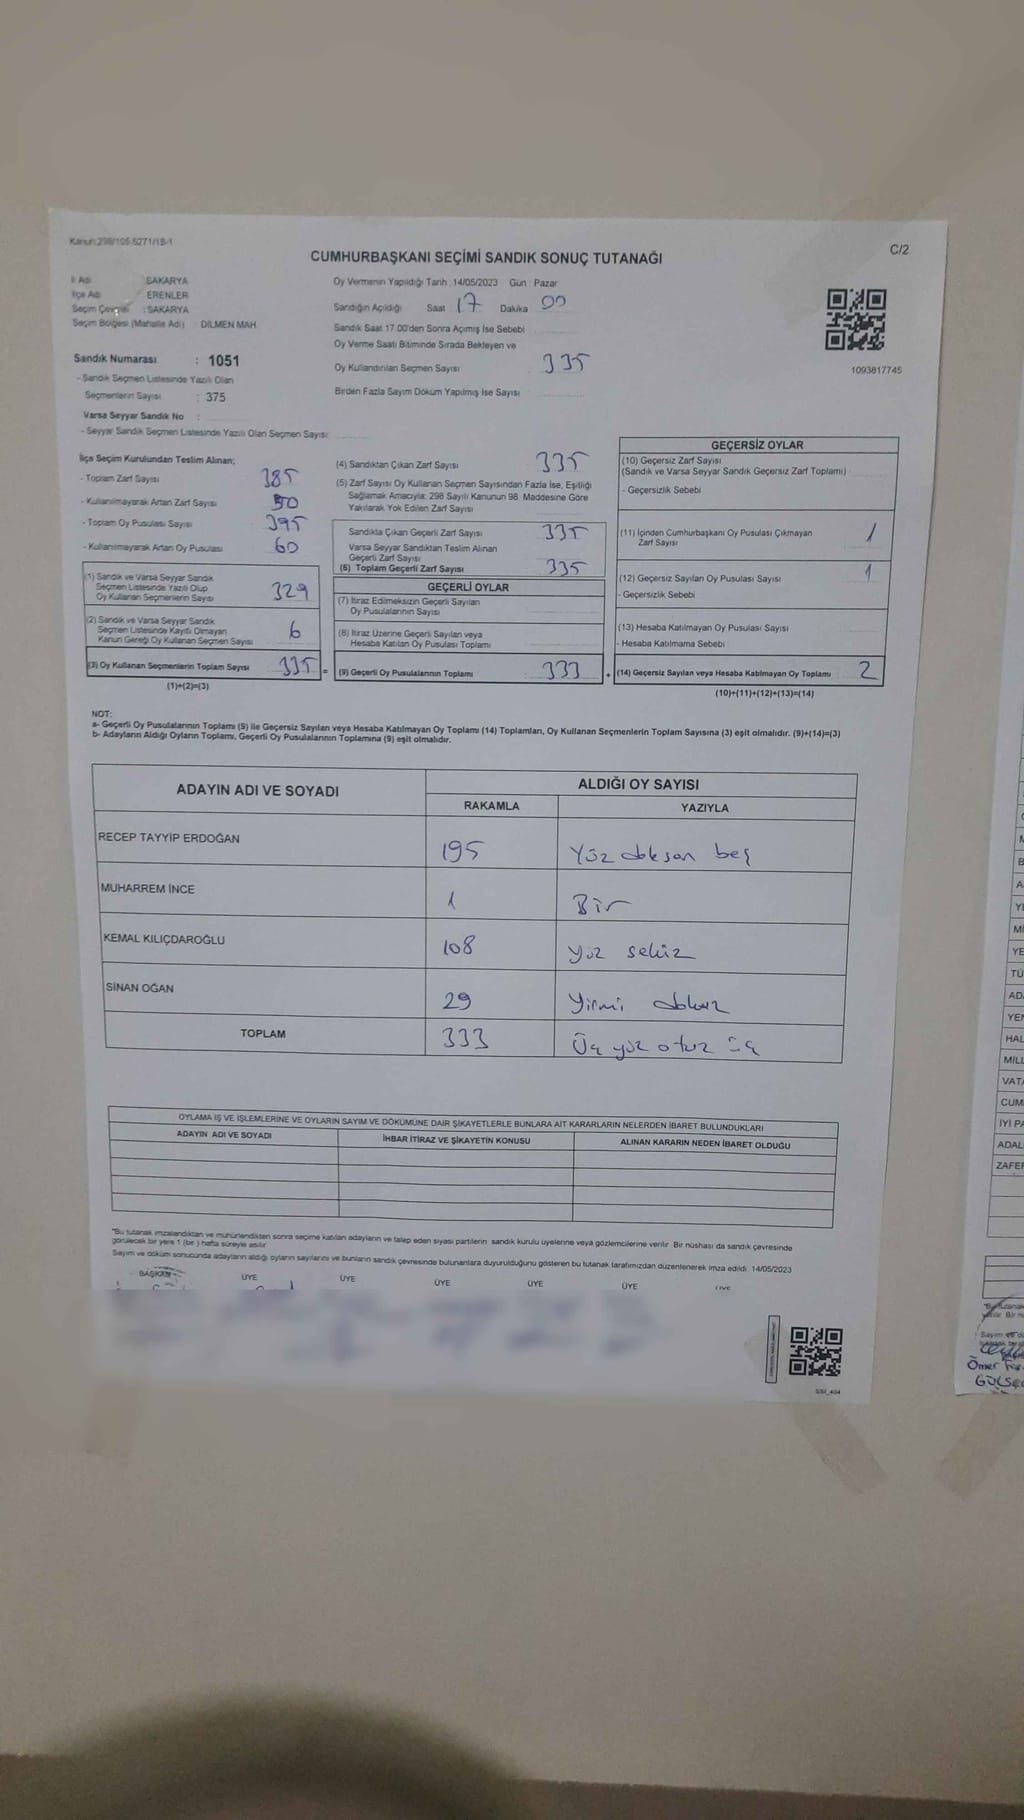 Kanun:298/105.6271/18-1
C/2
CUMHURBAŞKANI SEÇİMİ SANDIK SONUÇ TUTANAĞI
İl Adı : SAKARYA
İlçe Adı : ERENLER
Seçim Çevresi : SAKARYA
Seçim Bölgesi (Mahalle Adı) DİLMEN MAH.
Sandık Numarası : 1051
- Sandık Seçmen Listesinde Yazılı Olan
Seçmenlerin Sayısı : 375
Varsa Seyyar Sandık No :
- Seyyar Sandık Seçmen Listesinde Yazılı Olan Seçmen Sayısı
Oy Vermenin Yapıldığı Tarih :14/05/2023 Gün : Pazar
Sandığın Açıldığı Saat 17 Dakika 00
Sandık Saat 17.00'den Sonra Açılmış İse Sebebi
Oy Verme Saati Bitiminde Sırada Bekleyen ve
Oy Kullandırılan Seçmen Sayısı 335
Birden Fazla Sayım Döküm Yapılmış İse Sayısı
1093817745
İlçe Seçim Kurulundan Teslim Alınan;
- Toplam Zarf Sayısı 385
- Kullanılmayarak Artan Zarf Sayısı 50
- Toplam Oy Pusulası Sayısı 395
- Kullanılmayarak Artan Oy Pusulası 60
(1) Sandık ve Varsa Seyyar Sandık
Seçmen Listesinde Yazılı Olup
Oy Kullanan Seçmenlerin Sayısı 329
(2) Sandık ve Varsa Seyyar Sandık
Seçmen Listesinde Kayıtlı Olmayan
Kanun Gereği Oy Kullanan Seçmen Sayısı 6
(3) Oy Kullanan Seçmenlerin Toplam Sayısı 335 =
(1)+(2)=(3)
(4) Sandıktan Çıkan Zarf Sayısı 335
(5) Zarf Sayısı Oy Kullanan Seçmen Sayısından Fazla İse, Eşitliği
Sağlamak Amacıyla; 298 Sayılı Kanunun 98. Maddesine Göre
Yakılarak Yok Edilen Zarf Sayısı
Sandıkta Çıkan Geçerli Zarf Sayısı 335
Varsa Seyyar Sandıktan Teslim Alınan
Geçerli Zarf Sayısı
(6) Toplam Geçerli Zarf Sayısı 335
GEÇERLİ OYLAR
(7) İtiraz Edilmeksizin Geçerli Sayılan
Oy Pusulalarının Sayısı
(8) İtiraz Üzerine Geçerli Sayılan veya
Hesaba Katılan Oy Pusulası Toplamı
(9) Geçerli Oy Pusulalarının Toplamı 333 +
GEÇERSİZ OYLAR
(10) Geçersiz Zarf Sayısı
(Sandık ve Varsa Seyyar Sandık Geçersiz Zarf Toplamı)
- Geçersizlik Sebebi
(11) İçinden Cumhurbaşkanı Oy Pusulası Çıkmayan
Zarf Sayısı 1
(12) Geçersiz Sayılan Oy Pusulası Sayısı 1
- Geçersizlik Sebebi
(13) Hesaba Katılmayan Oy Pusulası Sayısı
- Hesaba Katılmama Sebebi
(14) Geçersiz Sayılan veya Hesaba Katılmayan Oy Toplamı 2
(10)+(11)+(12)+(13)=(14)
NOT:
a- Geçerli Oy Pusulalarının Toplamı (9) ile Geçersiz Sayılan veya Hesaba Katılmayan Oy Toplamı (14) Toplamları, Oy Kullanan Seçmenlerin Toplam Sayısına (3) eşit olmalıdır. (9)+(14)=(3)
b- Adayların Aldığı Oyların Toplamı, Geçerli Oy Pusulalarının Toplamına (9) eşit olmalıdır.
ADAYIN ADI VE SOYADI ALDIĞI OY SAYISI
RAKAMLA YAZIYLA
RECEP TAYYİP ERDOĞAN 195 Yüz doksan beş
MUHARREM İNCE 1 Bir
KEMAL KILIÇDAROĞLU 108 yüz sekiz
SİNAN OĞAN 29 Yirmi dokuz
TOPLAM 333 Üç yüz otuz üç
OYLAMA İŞ VE İŞLEMLERİNE VE OYLARIN SAYIM VE DÖKÜMÜNE DAİR ŞİKAYETLERLE BUNLARA AİT KARARLARIN NELERDEN İBARET BULUNDUKLARI
ADAYIN ADI VE SOYADI İHBAR İTİRAZ VE ŞİKAYETİN KONUSU ALINAN KARARIN NEDEN İBARET OLDUĞU
"Bu tutanak imzalandıktan ve mühürlendikten sonra seçime katılan adayların ve talep eden siyasi partilerin sandık kurulu üyelerine veya gözlemcilerine verilir. Bir nüshası da sandık çevresinde
görülecek bir yere 1 (bir) hafta süreyle asılır.
Sayım ve döküm sonucunda adayların aldığı oyların sayılarını ve bunların sandık çevresinde bulunanlara duyurulduğunu gösteren bu tutanak tarafımızdan düzenlenerek imza edildi. 14/05/2023
BAŞKAN ÜYE ÜYE ÜYE ÜYE ÜYE ÜYE
SSI_404
HAL
VATA
CUM
İYİ PA
ADAL
ZAFER
Ömer